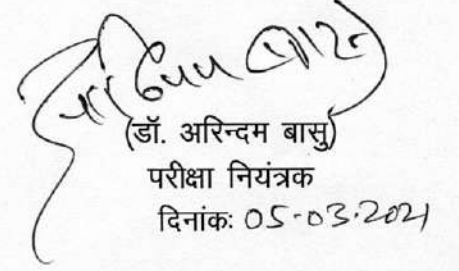 (डॉ. अरिन्दम बासु)
परीक्षा नियंत्रक
दिनांकः 05-03-2021